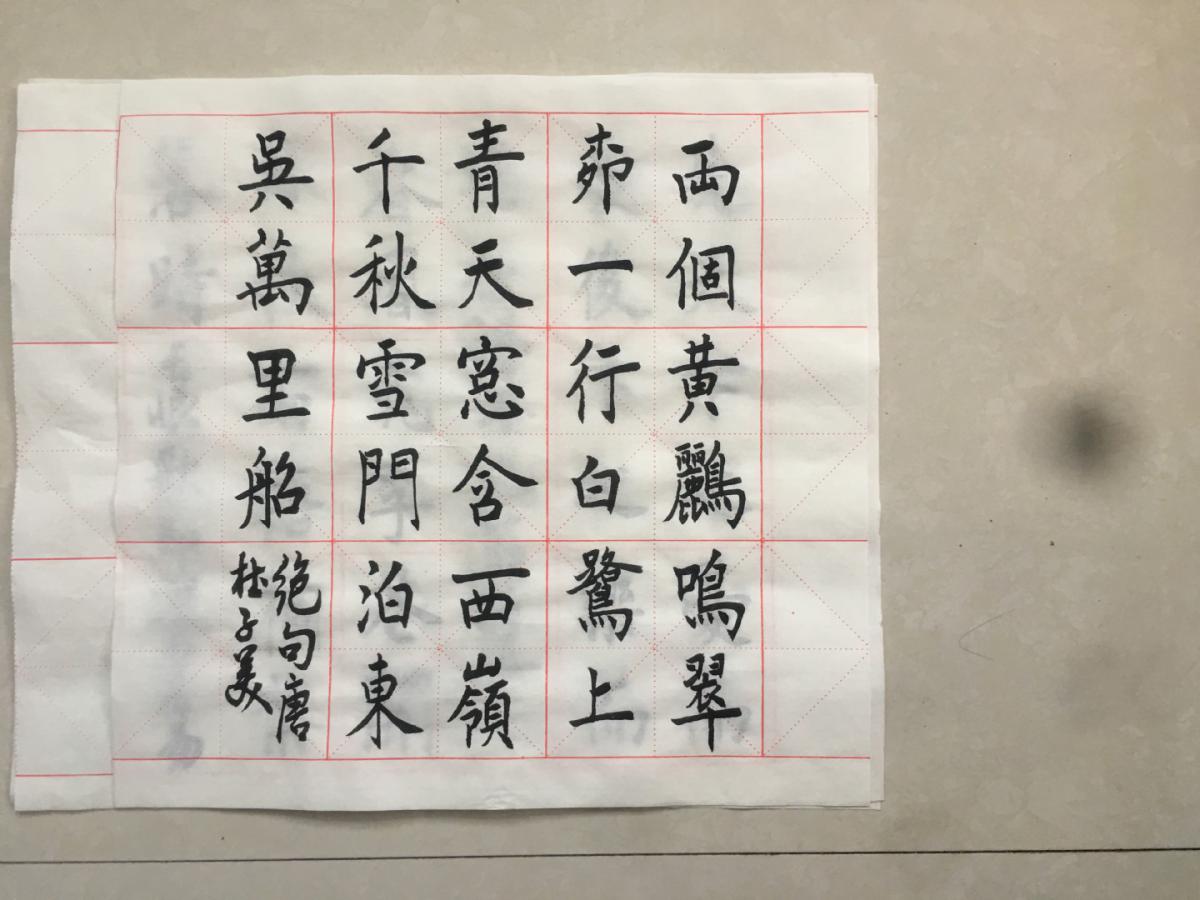 両個黄鸝鳴翠
柳一行白鷺上
青天窓含西嶺
千秋雪門泊東
吳萬里船
绝句唐
杜子美